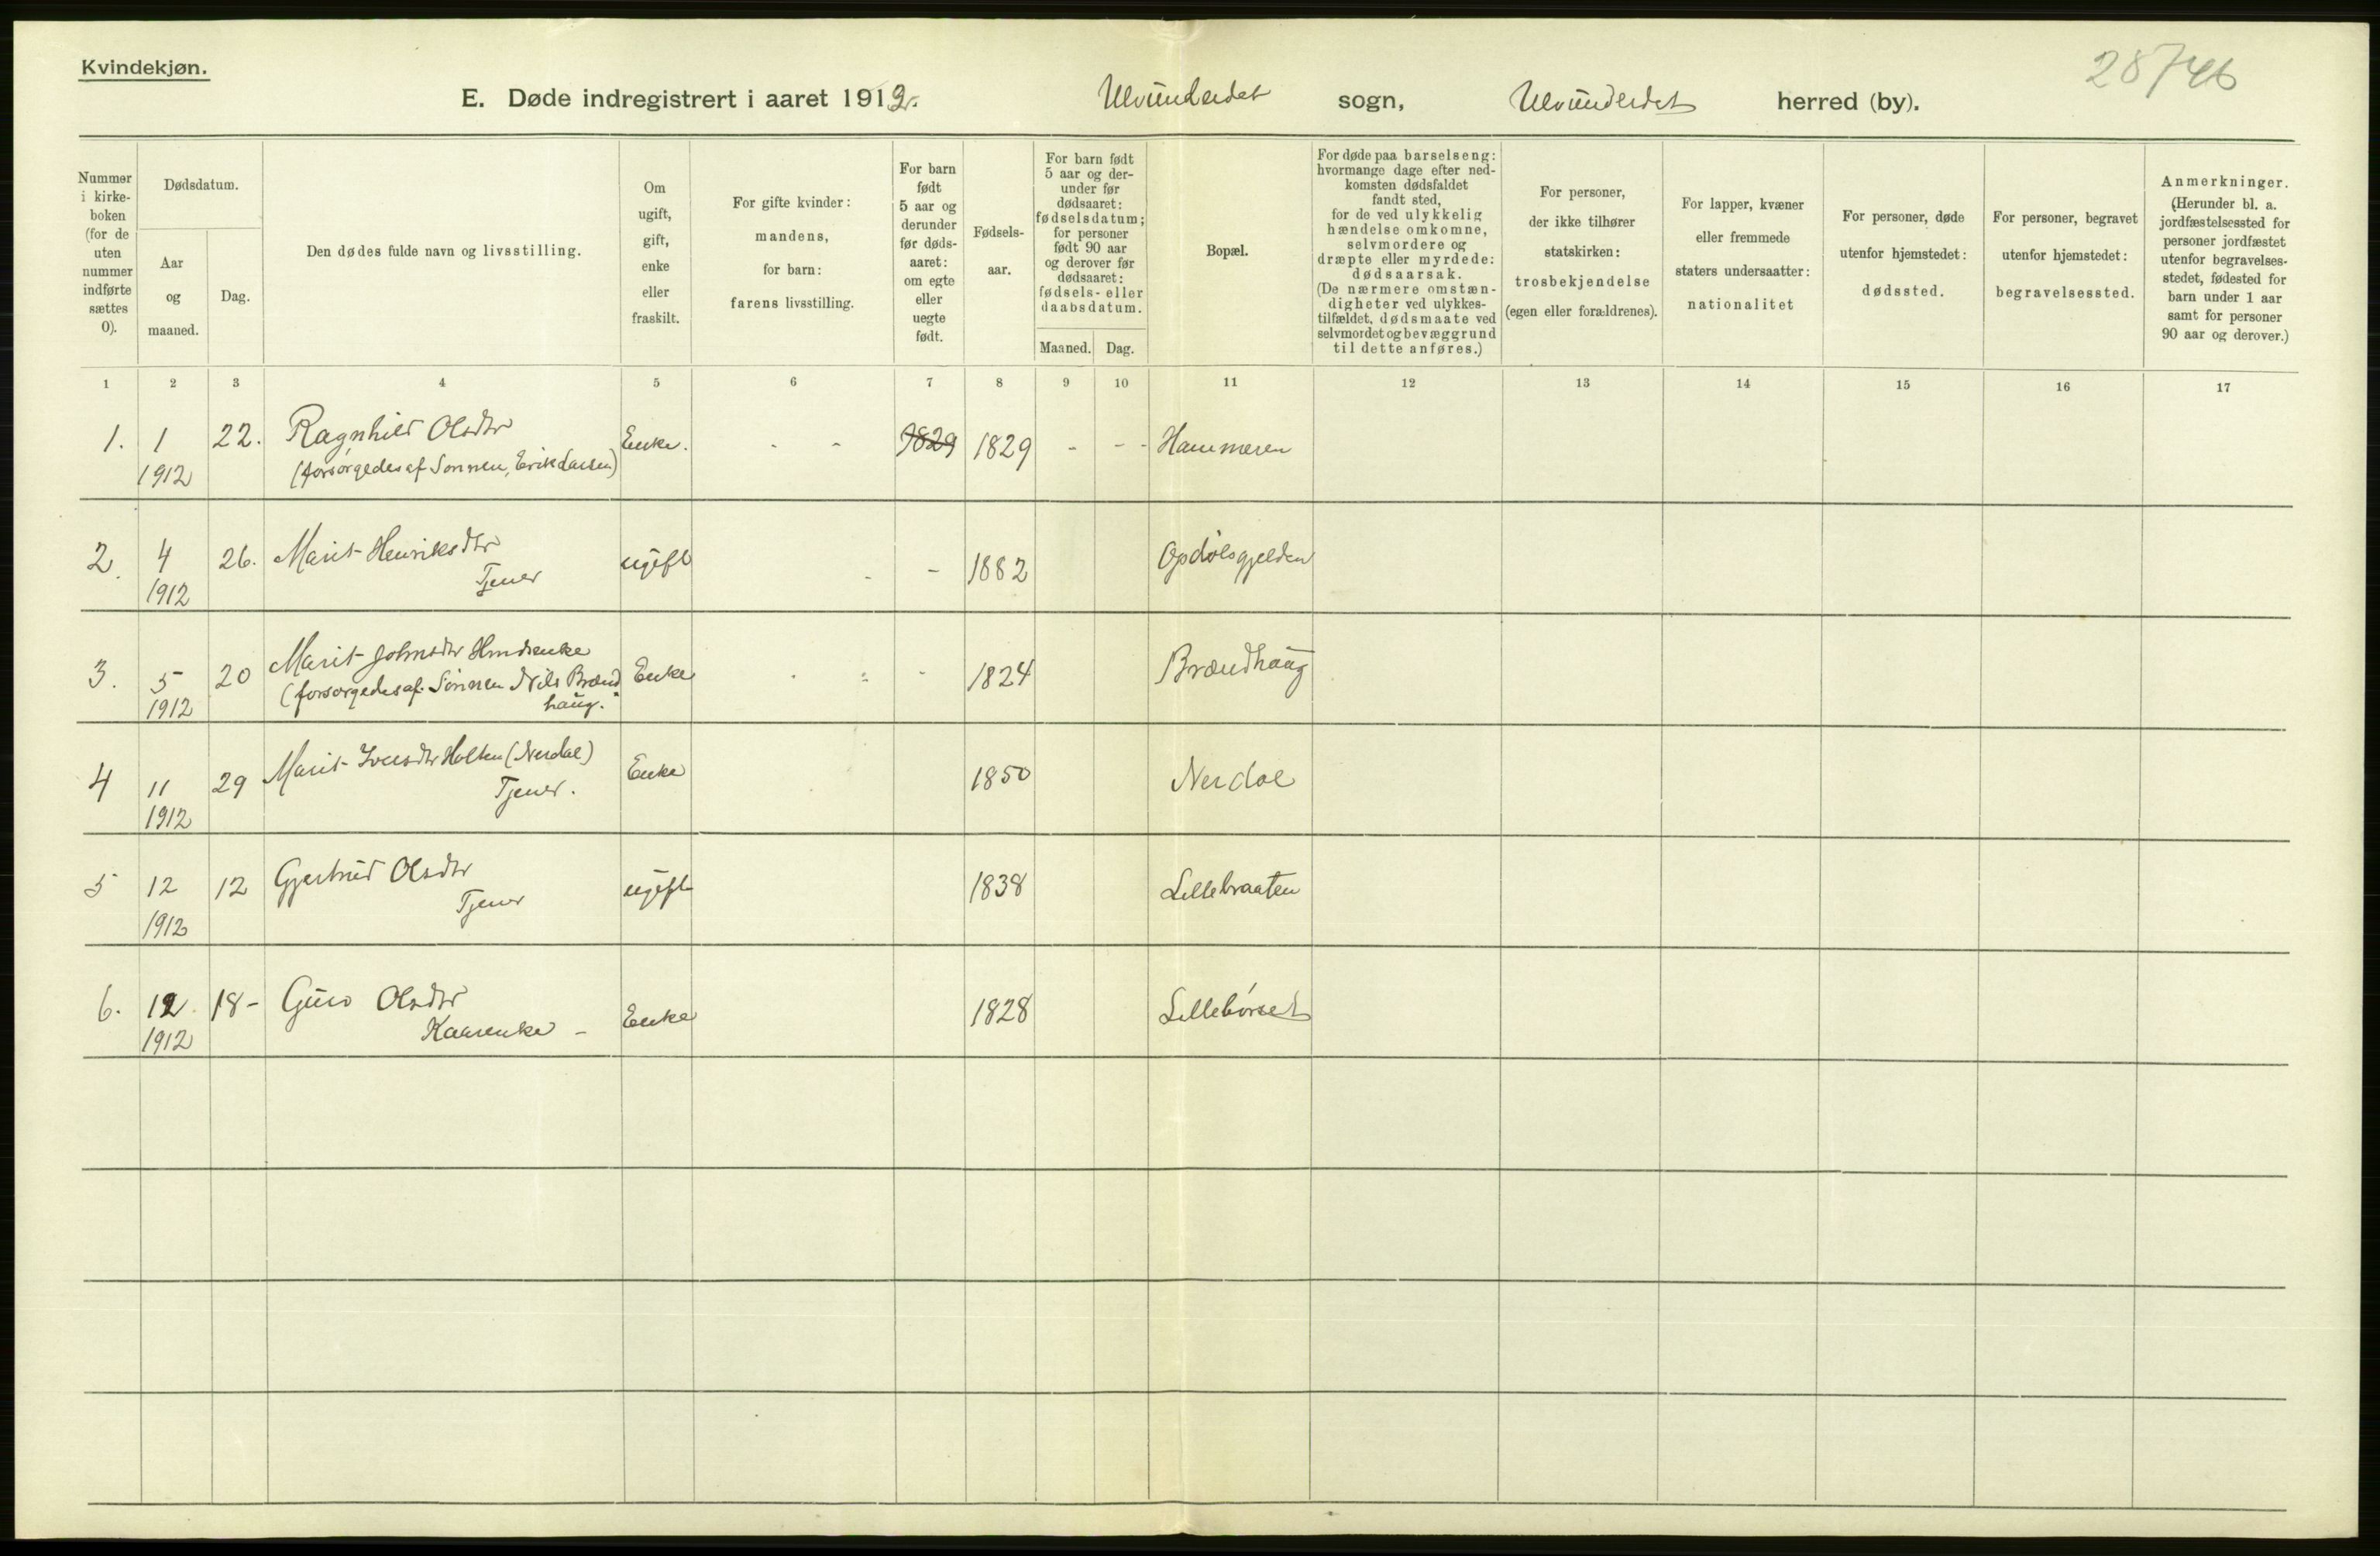 Kvindekjøn.
28746
E. Døde indregistrert i aaret 1912. Ulvundeidet sogn, Ulvundeidet herred (by).
Nummer i kirke-boken (for de uten nummer indførte sættes 0).
Dødsdatum.
Aar og maaned.
Dag.
Den dødes fulde navn og livsstilling.
Om ugift, gift, enke eller fraskilt.
For gifte kvinder: mandens, for barn: farens livsstilling.
For barn født 5 aar og derunder før døds-aaret: om egte eller uegte født.
Fødsels-aar.
For barn født 5 aar og der-under før dødsaaret: fødselsdatum; for personer født 90 aar og derover før dødsaaret: fødsels- eller daabsdatum.
Maaned.
Dag.
Bopæl.
For døde paa barselseng: hvormange dage efter ned-komsten dødsfaldet fandt sted, for de ved ulykkelig hændelse omkomne, selvmordere og dræpte eller myrdede: dødsaarsak. (De nærmere omstæn-digheter ved ulykkes-tilfældet, dødsmaate ved selvmordet og bevæggrund til dette anføres.)
For personer, der ikke tilhører statskirken: trosbekjendelse (egen eller forældrenes).
For lapper, kvæner eller fremmede staters undersaatter: nationalitet
For personer, døde utenfor hjemstedet: dødssted.
For personer, begravet utenfor hjemstedet: begravelsessted.
Anmerkninger. (Herunder bl. a. jordfæstelsessted for personer jordfæstet utenfor begravelses-stedet, fødested for barn under 1 aar samt for personer 90 aar og derover.)
1 2 3 4 5 6 7 8 9 10 11 12 13 14 15 16 17
1. 1 22. Ragnhild Olsdtr Enke. - - 1829 1829 - - - Hammeren
1912 (forsørgedes af Sønnen, Erik Larsen)
2. 4 26. Marit Henriksdtr ugift - - 1882 Opdølsgjelden
1912 Tjener
3. 5 20 Marit Johnsdtr Enke - - - 1824 Brændhaug
1912 (forsørgedes af Sønnen Nils Brænd
haug.
4 11 29 Marit Iversdtr Holten (Nerdal) Enke 1850 Nerdal
1912 Tjener.
5 12 12 Gjertrud Olsdtr ugift 1838 Lillebraaten
1912 Tjener
6. 12. 18- Guro Olsdtr Enke 1828 Lillebørset
1912 Kaarenke -